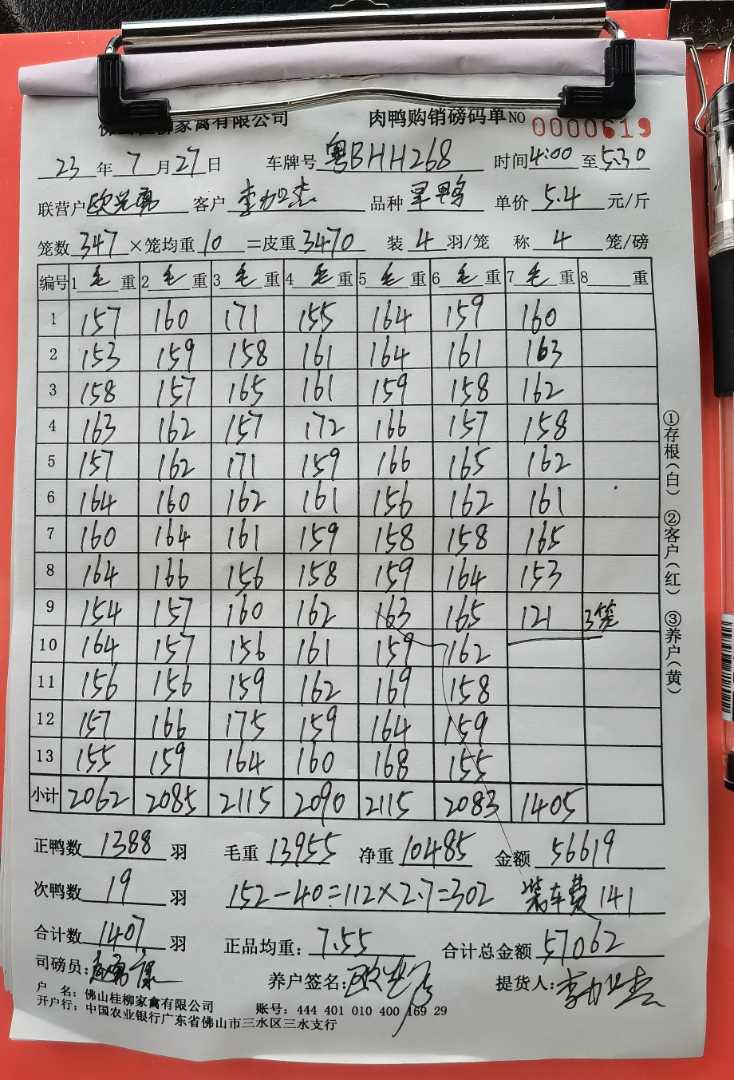 佛山桂柳家禽有限公司 肉鸭购销磅码单 NO 0000619
23 年 7 月 27 日 车牌号 粤BHH268 时间 4:00 至 5:30
联营户 客户 品种 单价 5.4 元/斤
笼数 347 ×笼均重 10 =皮重 3470 装 4 羽/笼 称 4 笼/磅
编号 1 毛 重 2 毛 重 3 毛 重 4 毛 重 5 毛 重 6 毛 重 7 毛 重 8 重
1 157 160 171 155 164 159 160
2 153 159 158 161 164 161 163
3 158 157 165 161 159 158 162
4 163 162 157 172 166 157 158
5 157 162 171 159 166 165 162
6 164 160 162 161 156 162 161
7 160 164 161 159 158 158 165
8 164 166 156 158 159 164 153
9 154 157 160 162 163 165 121 3笼
10 164 157 156 161 159 162
11 156 156 159 162 169 158
12 157 166 175 159 164 159
13 155 159 164 160 168 155
小计 2062 2085 2115 2090 2115 2083 1405
①存根(白) ②客户(红) ③养户(黄)
正鸭数 1388 羽 毛重 13955 净重 10485 金额 56619
次鸭数 19 羽 152-40=112×2.7=302 装车费 141
合计数 1407 羽 正品均重: 7.55 合计总金额 57062
司磅员: 养户签名: 提货人:
户 名: 佛山桂柳家禽有限公司
开户行: 中国农业银行广东省佛山市三水区三水支行 账号: 444 401 010 400 169 29